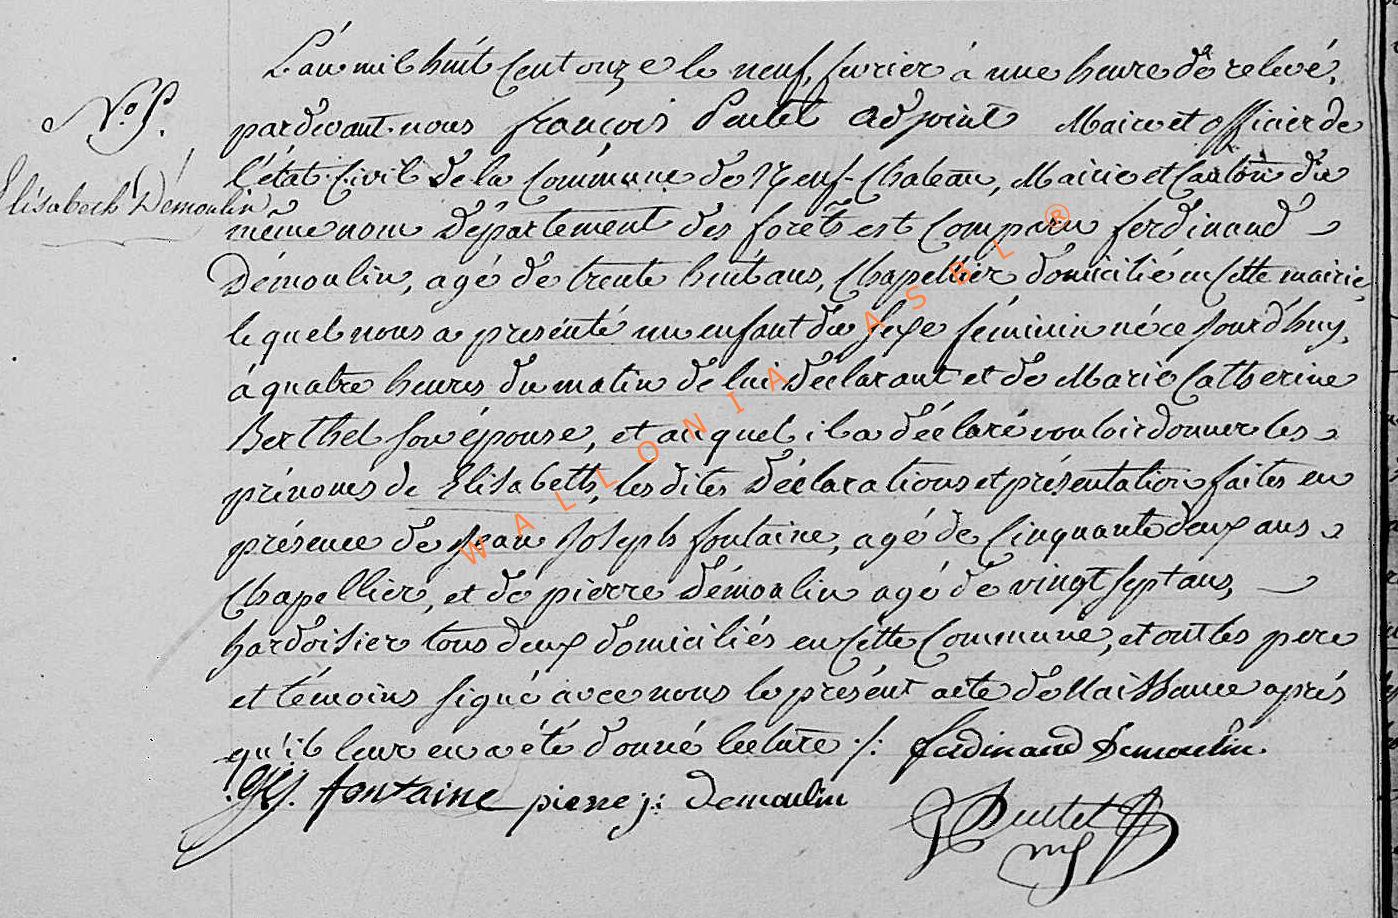 L'an mil huit Cent onze le neuf fevrier à une heure de relevé,
pardevant nous françois Pentel adjoint Maire et officier de
l'état Civil de la Commune de Neuf-Chateau, Mairie et Canton du
même nom Département des forêts est Comparu ferdinand
Démoulin, agé de trente huit ans, Chapellier domicilié en Cette mairie,
lequel nous a présenté un enfant du sexe féminin né ce jourd'huy,
à quatre heures du matin de lui déclarant et de Marie Catherine
Berthel son épouse, et auquel il a déclaré vouloir donner les
prénoms de Elisabeth, les dites déclarations et présentation faites en
présence de Jean Joseph fontaine, agé de Cinquante deux ans
Chapellier, et de pierre Démoulin agé de vingt sept ans,
hardoisier tous deux domiciliés en Cette Commune, et ont les pere
et témoins signé avec nous le présent acte de Naissance aprés
qu'il leur en a été donné lecture ./. ferdinand Demoulin.
fontaine pierre j: demoulin
N.º 5.
Elisabeth Démoulin
WALLONIA ASBL ®